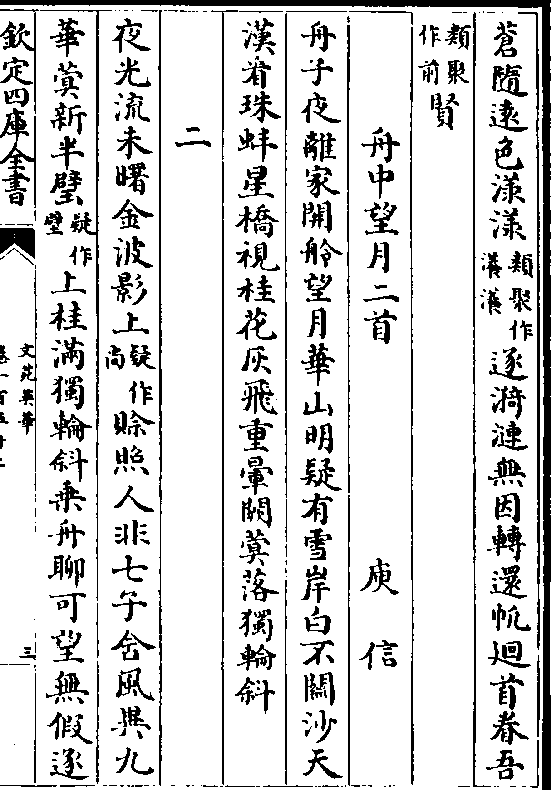 蒼隨遠色漾漾類聚作漢漢逐漪漣無因轉還帆迴首眷吾
類聚作前賢
舟中望月二首 庾信
舟子夜離家開舲望月華山明疑有雪岸白不關沙天
漢看珠蚌星橋視桂花灰飛重暈闕蓂落獨輪斜
二
夜光流未曙金波影上疑作尚賒照人非七子含風異九
華蓂新半璧疑作壁上桂滿獨輪斜乗舟聊可望無假逐
欽定四庫全書
文苑英華
三